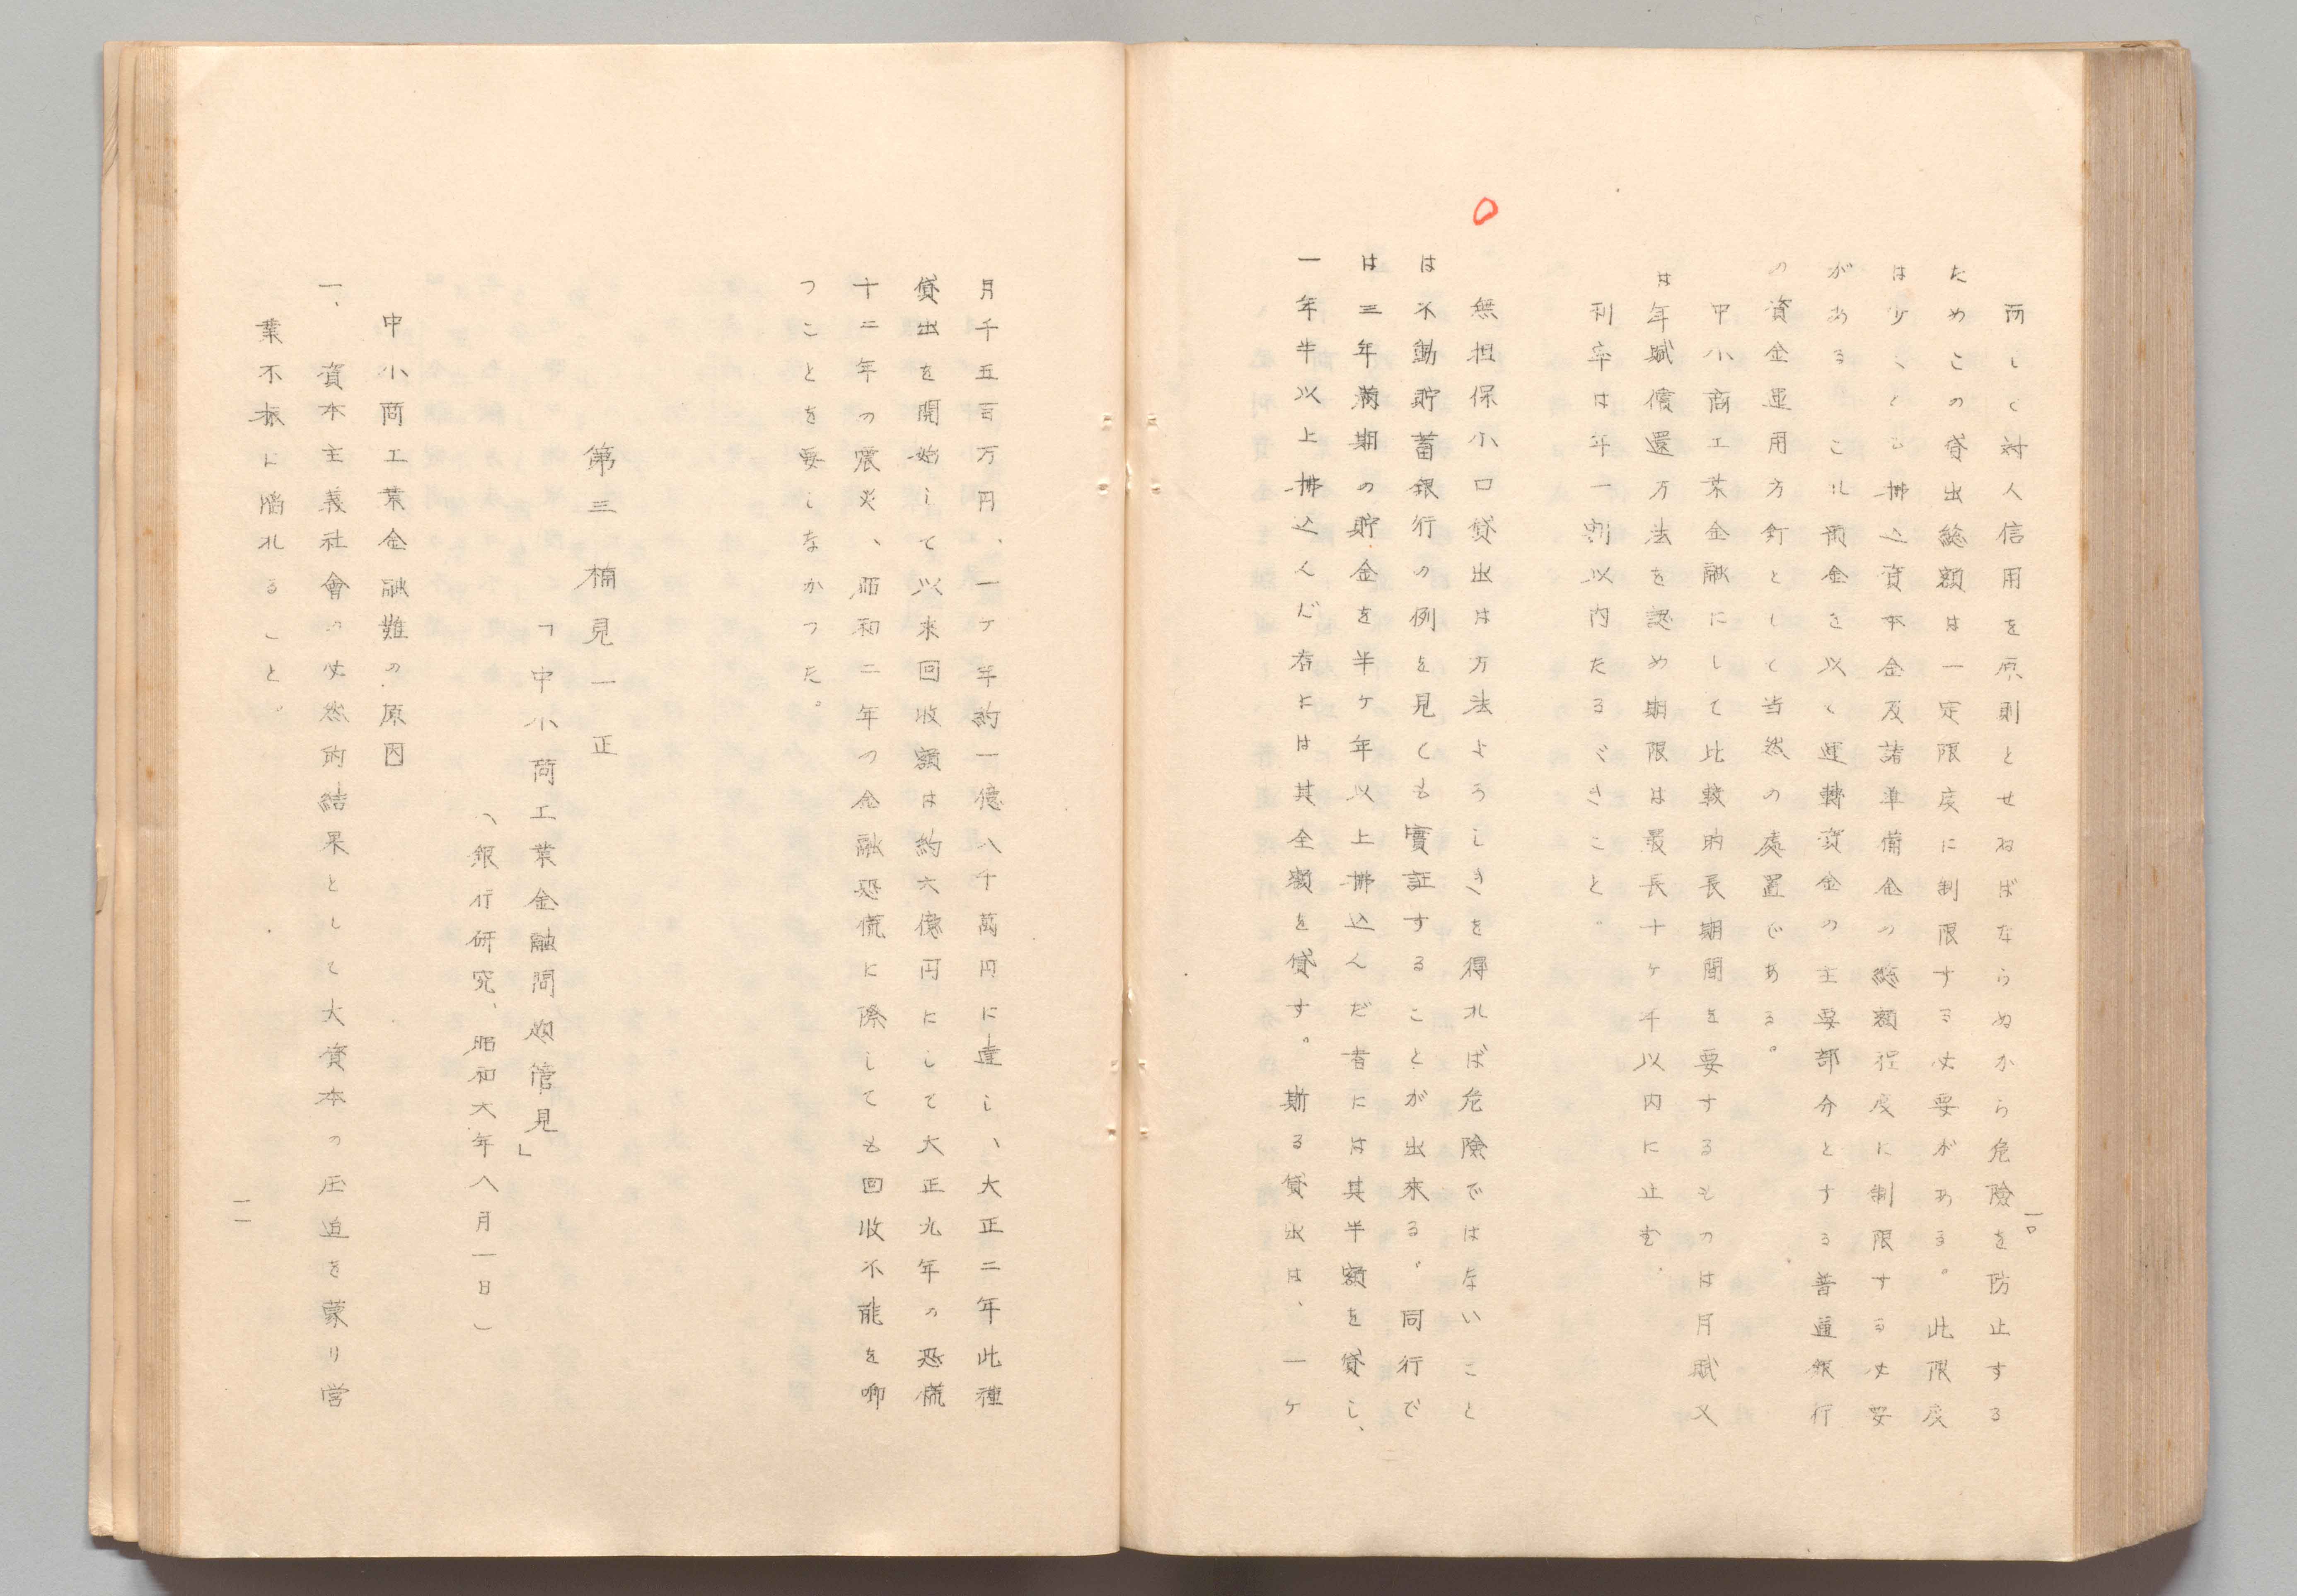 一〇
而して対人信用を原則とせねばならぬから危險を防止する
ためこの貸出総額は一定限度に制限する必要がある。此限度
は少くとも拂込資本金及諸準備金の総額程度に制限する必要
がある これ預金を以て運轉資金の主要部分とする普通銀行
の資金運用方針として当然の處置である。
中小商工業金融にして比較的長期間を要するものは月賦又
は年賦償還方法を認め期限は最長十ヶ年以内に止む。
利率は年一割以内たるべきこと。
無担保小口貸出は方法よろしきを得れば危險ではないこと
は不動貯蓄銀行の例を見ても實証することが出來る。同行で
は三年満期の貯金を半ヶ年以上拂込んだ者には其半額を貸し、
一年半以上拂込んだ者には其全額を貸す。斯る貸出は、一ヶ
月千五百万円、一ヶ年約一億八千萬円に達し、大正二年此種
貸出を開始して以来回收額は約六億円にして大正九年の恐慌
十二年の震災、昭和二年の金融恐慌に際しても回收不能を喞
つことを要しなかつた。
第三 楠見一正
「中小商工業金融問題管見」
（銀行研究、昭和六年八月一日）
中小商工業金融難の原因
一、資本主義社會の必然的結果として大資本の圧迫を蒙り営
業不振に陥れること。
一一